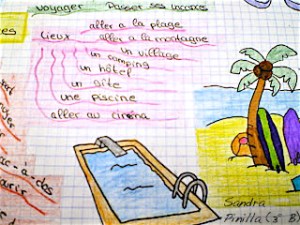 voyager Passer ses vacances
aller a la plage
lieux aller a la montagne
un village
un camping
un hôtel
un gîte
une piscine
aller au cinéma
Sandra
Pinilla (3º B)